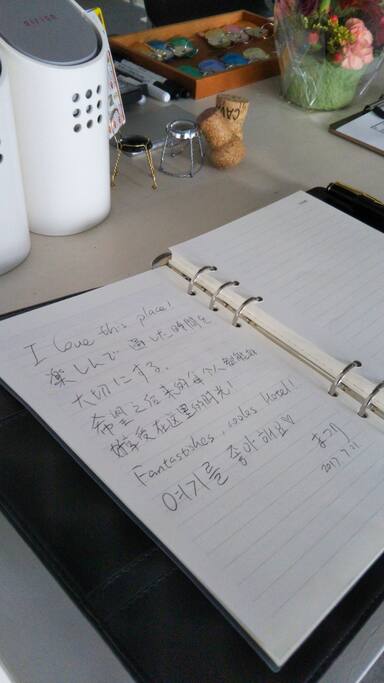 I love this place!
楽しんで 過した時間を
大切にする。
希望之后来的每个人都能
享受在这里的时光!
Fantastishes, cooles Hotel!
여기를 좋아해요♡
まつり
2017.7.21
CAV